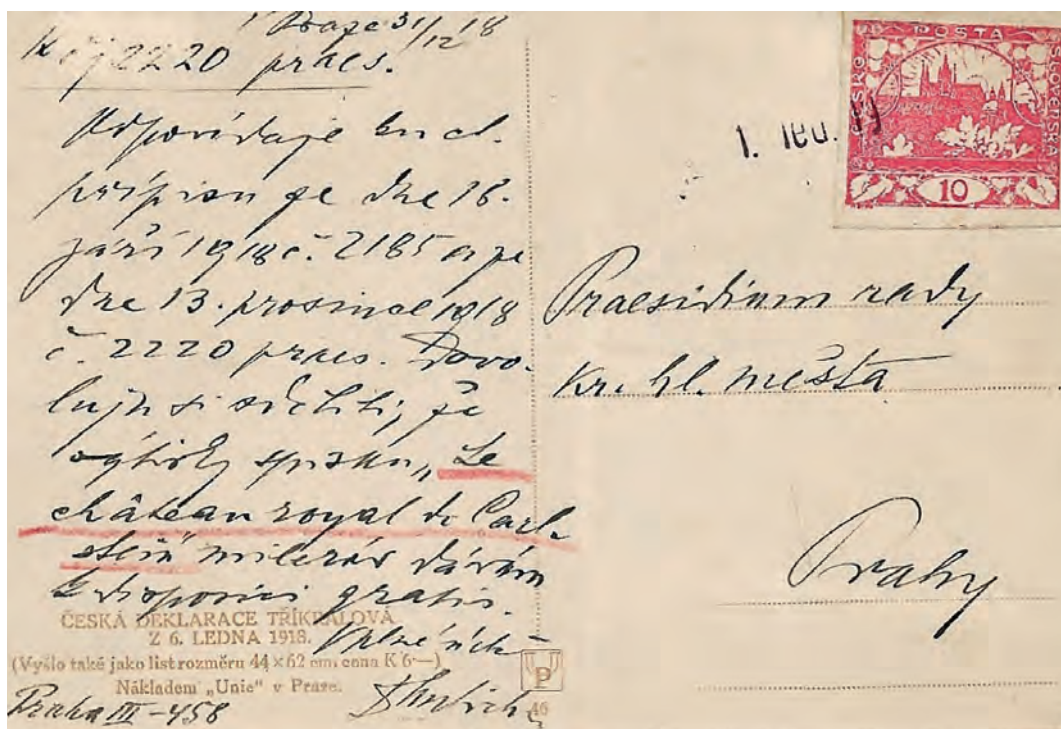 V Praze 31/12 18
K čj 2220 praes.
Odpovídaje ku ct.
přípisu ze dne 16.
září 1918 č. 2185 a ze
dne 13. prosince 1918
č. 2220 praes. Dovo-
luji si sděliti, že
výtisky spisku „Le
château royal de Carl-
stein" milerád dávám
k disposici gratis.
V plné úctě
Praha III-458
ČESKÁ DEKLARACE TŘÍKRÁLOVÁ
Z 6. LEDNA 1918.
(Vyšlo také jako list rozměru 44 × 62 cm, cena K 6·—)
Nákladem „Unie" v Praze.
UP
46
POSTA
ČESKO
SLOVENSKA
10
1. led. 19
Praesidium rady
kr. hl. města
Prahy